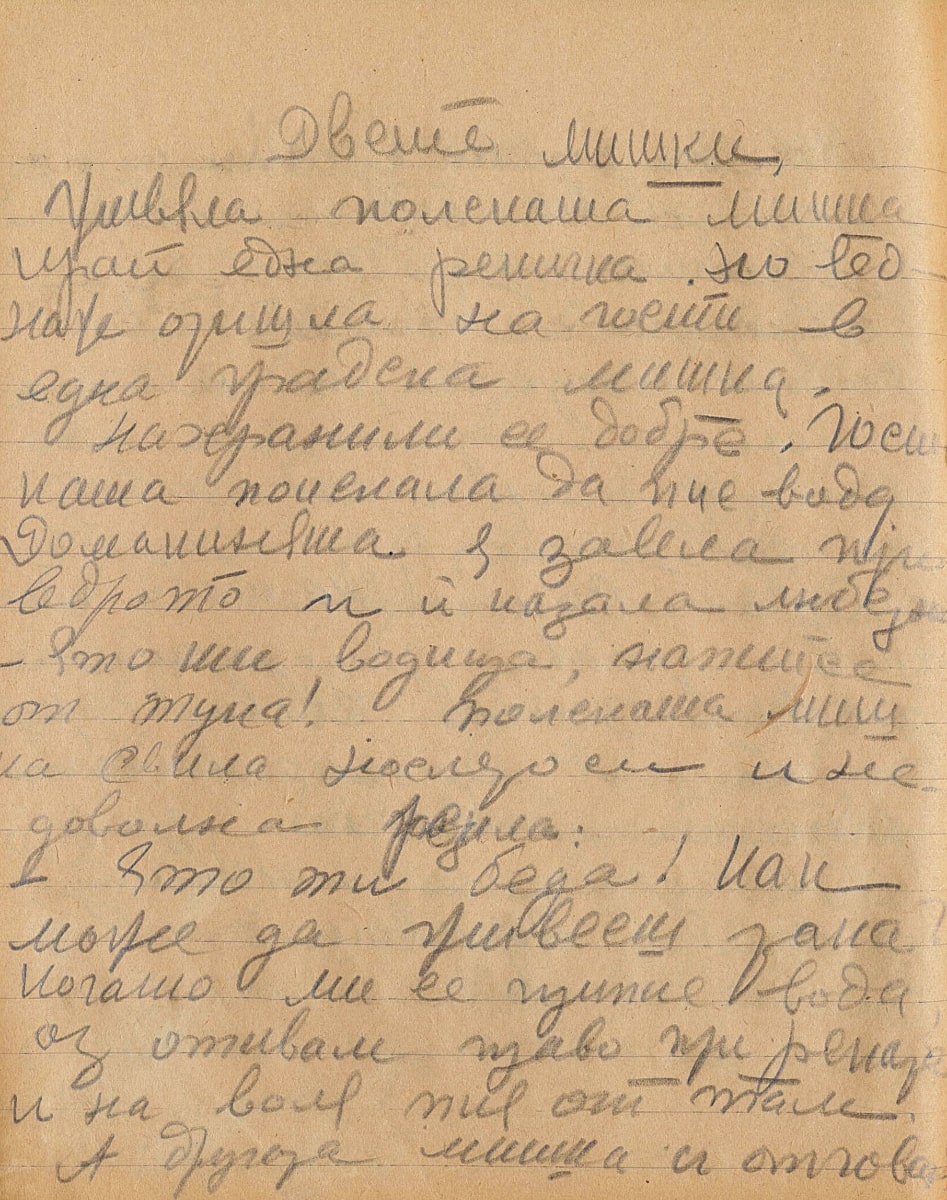 Двете мишки,
Живяла полската мишка
край една рекичка. но вед-
наж отишла на гости в
една градска мишка.
Нахранили се добре. Гост
ката поискала да пие вода
Домакинята я завела при
ведрото и ѝ казала любезно
- Ято ти водица, напий се
от тука! Полската миш
ка свила носле си и не-
доволна рекла:
- Ято ти беда! Как
може да живееш така?
Когато ми се припие вода,
аз отивам право при реката
и на воля пия от там.
А другата мишка и отгова